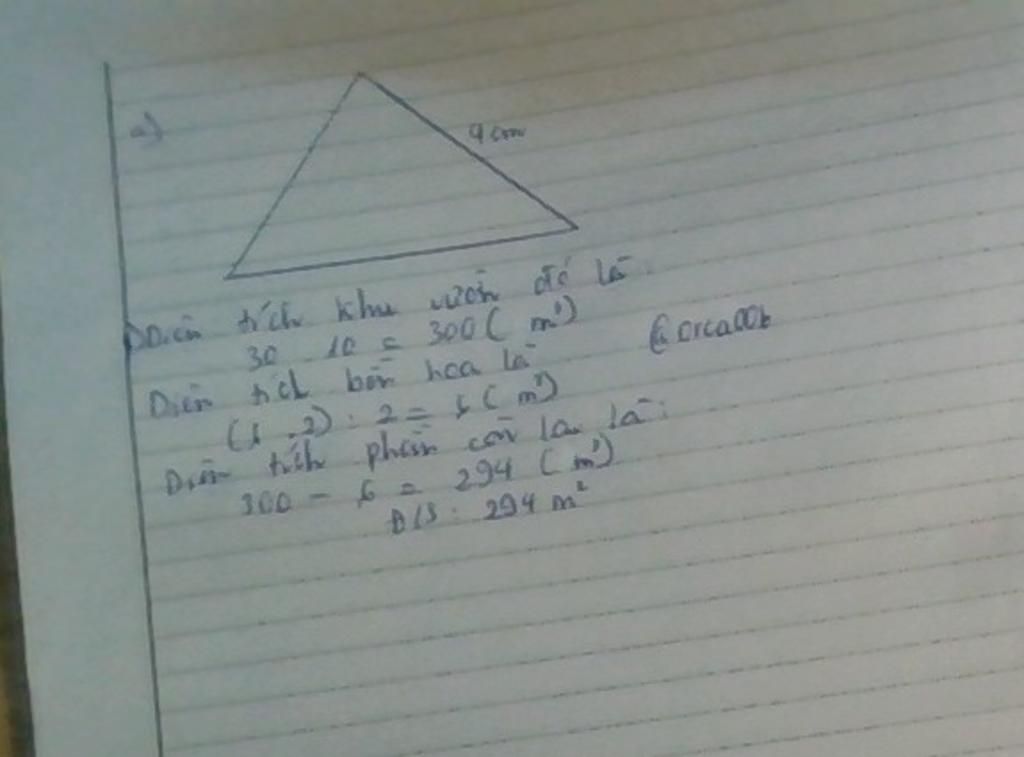 a)
9 cm
b) Diện tích khu vườn đó là:
30 . 10 = 300 ( m²)
@orca00b
Diện tích bồn hoa là
(6 . 2) : 2 = 6 ( m²)
Diện tích phần còn lại là:
300 - 6 = 294 ( m²)
Đ/S : 294 m²